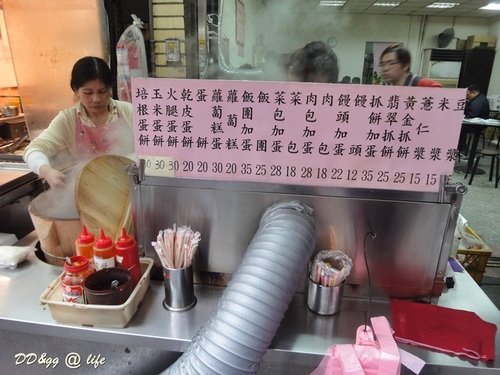 培根蛋餅 30
玉米蛋餅 30
火腿蛋餅 30
乾皮蛋餅 35
蛋餅 20
蘿蔔糕蛋 35
蘿蔔糕 25
飯團加蛋 35
飯團 25
菜包加蛋 28
菜包 18
肉包加蛋 28
肉包 18
饅頭加蛋 22
饅頭 12
抓餅加蛋 35
翡翠抓餅 25
黃金抓餅 25
薏仁漿 15
米漿 15
豆漿
DD&gg @ life